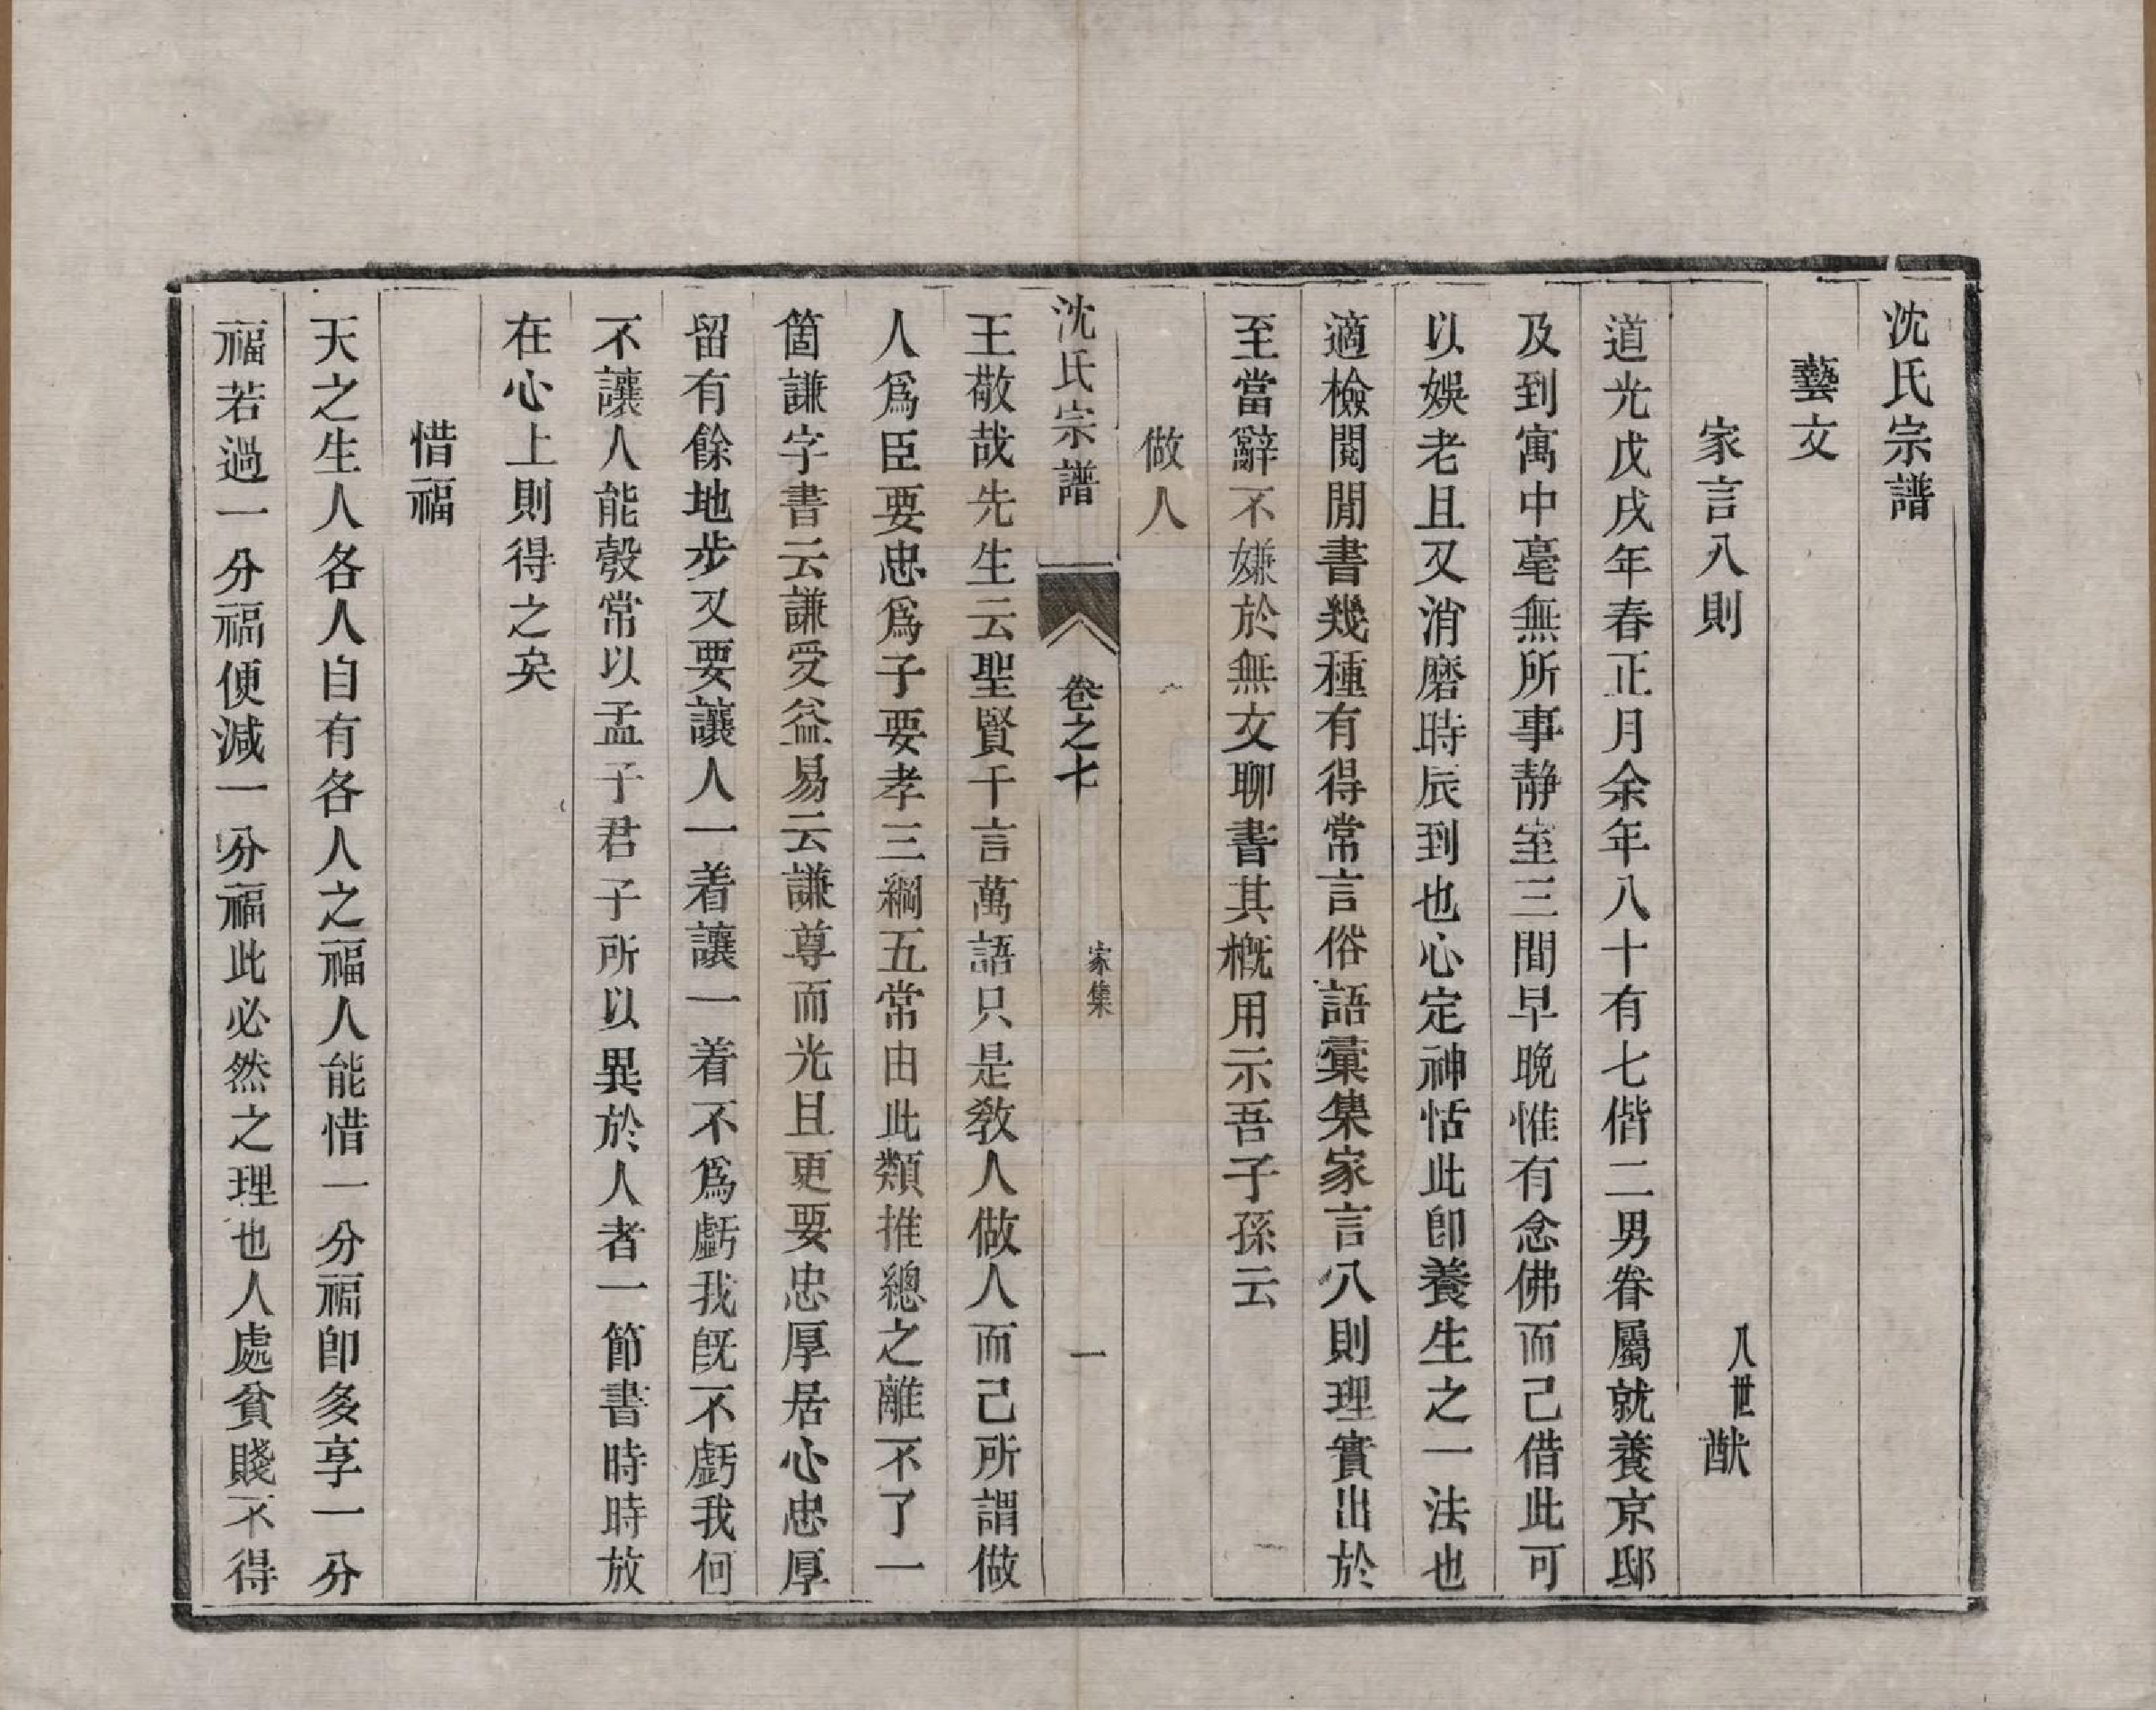 沈氏宗譜
藝文
家言八則　八世猷
道光戊戌年春正月余年八十有七偕二男眷屬就養京邸
及到寓中毫無所事靜室三間早晚惟有念佛而已借此可
以娛老且又消磨時辰到也心定神恬此卽養生之一法也
適檢閱閒書幾種有得常言俗語彙集家言八則理實出於
至當辭不嫌於無文聊書其槪用示吾子孫云
做人
沈氏宗譜　卷之七　家集　一
王敬哉先生云聖賢千言萬語只是教人做人而己所謂做
人爲臣要忠爲子要孝三綱五常由此類推總之離不了一
箇謙字書云謙受益易云謙尊而光且更要忠厚居心忠厚
留有餘地步又要讓人一着讓一着不爲虧我旣不虧我何
不讓人能彀常以孟子君子所以異於人者一節書時時放
在心上則得之矣
惜福
天之生人各人自有各人之福人能惜一分福卽多享一分
福若過一分福便減一分福此必然之理也人處貧賤不得